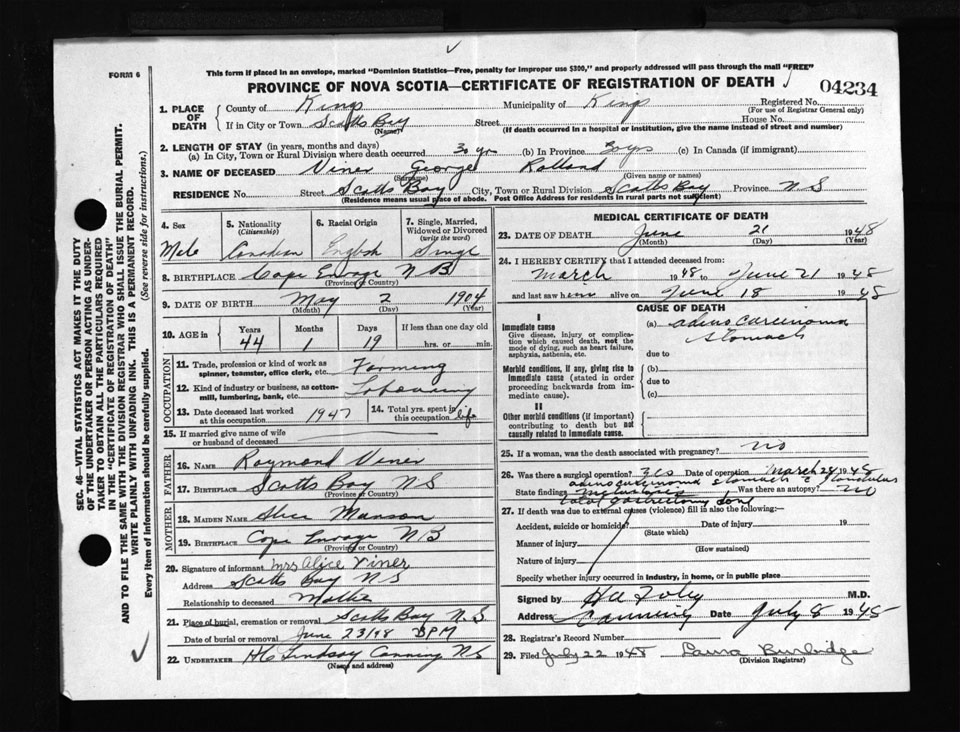 FORM 6
This form if placed in an envelope, marked "Dominion Statistics—Free, penalty for improper use $300," and properly addressed will pass through the mail "FREE"
PROVINCE OF NOVA SCOTIA—CERTIFICATE OF REGISTRATION OF DEATH
04234
SEC. 46—VITAL STATISTICS ACT MAKES IT THE DUTY
OF THE UNDERTAKER OR PERSON ACTING AS UNDER-
TAKER TO OBTAIN ALL THE PARTICULARS REQUIRED
IN THE "CERTIFICATE OF REGISTRATION OF DEATH"
AND TO FILE THE SAME WITH THE DIVISION REGISTRAR WHO SHALL ISSUE THE BURIAL PERMIT.
WRITE PLAINLY WITH UNFADING INK. THIS IS A PERMANENT RECORD.
Every item of information should be carefully supplied. (See reverse side for instructions.)
1. PLACE OF DEATH
County of Kings Municipality of Kings Registered No.
(For use of Registrar General only)
If in City or Town Scotts Bay Street House No.
(Name) (If death occurred in a hospital or institution, give the name instead of street and number)
2. LENGTH OF STAY (in years, months and days)
(a) In City, Town or Rural Division where death occurred 30 yrs (b) In Province 30 yrs (c) In Canada (if immigrant)
3. NAME OF DECEASED Viner George Rolland
(Surname) (Given name or names)
RESIDENCE No. Street Scotts Bay City, Town or Rural Division Scotts Bay Province N S
(Residence means usual place of abode. Post Office Address for residents in rural parts not sufficient)
4. Sex
Male
5. Nationality
(Citizenship)
Canadian
6. Racial Origin
English
7. Single, Married,
Widowed or Divorced
(write the word)
Single
8. BIRTHPLACE Cape Enrage N B
(Province or Country)
9. DATE OF BIRTH May 2 1904
(Month) (Day) (Year)
10. AGE in Years Months Days If less than one day old
44 1 19 hrs. or min.
OCCUPATION
11. Trade, profession or kind of work as
spinner, teamster, office clerk, etc. Farming
12. Kind of industry or business, as cotton-
mill, lumbering, bank, etc.
13. Date deceased last worked
at this occupation 1947
14. Total yrs. spent in
this occupation life
15. If married give name of wife
or husband of deceased
FATHER
16. NAME Raymond Viner
17. BIRTHPLACE Scotts Bay N S
(Province or Country)
MOTHER
18. MAIDEN NAME Alice Manson
19. BIRTHPLACE Cape Enrage N B
(Province or Country)
20. Signature of informant Mrs Alice Viner
Address Scotts Bay N S
Relationship to deceased Mother
21. Place of burial, cremation or removal Scotts Bay N. S.
Date of burial or removal June 23/48 PM
22. UNDERTAKER Lindsay Canning N S
(Name and address)
MEDICAL CERTIFICATE OF DEATH
23. DATE OF DEATH June 21 1948
(Month) (Day) (Year)
24. I HEREBY CERTIFY that I attended deceased from:
March 1948 to June 21 1948
and last saw him alive on June 18 1948
I
Immediate cause
Give disease, injury or complica-
tion which caused death, not the
mode of dying, such as heart failure,
asphyxia, asthenia, etc.
Morbid conditions, if any, giving rise to
immediate cause (stated in order
proceeding backwards from im-
mediate cause).
II
Other morbid conditions (if important)
contributing to death but not
causally related to immediate cause.
CAUSE OF DEATH
(a) adeno carcinoma
stomach
due to
(b)
due to
(c)
25. If a woman, was the death associated with pregnancy? no
26. Was there a surgical operation? yes Date of operation March 24 1948
adenocarcinoma stomach
State finding Was there an autopsy? no
total gastrectomy done
27. If death was due to external causes (violence) fill in also the following:—
Accident, suicide or homicide? Date of injury 19
(State which)
Manner of injury
(How sustained)
Nature of injury
Specify whether injury occurred in industry, in home, or in public place
Signed by M.D.
Address Canning Date July 8 1948
28. Registrar's Record Number
29. Filed July 22 1948 Laura Burbidge
(Division Registrar)